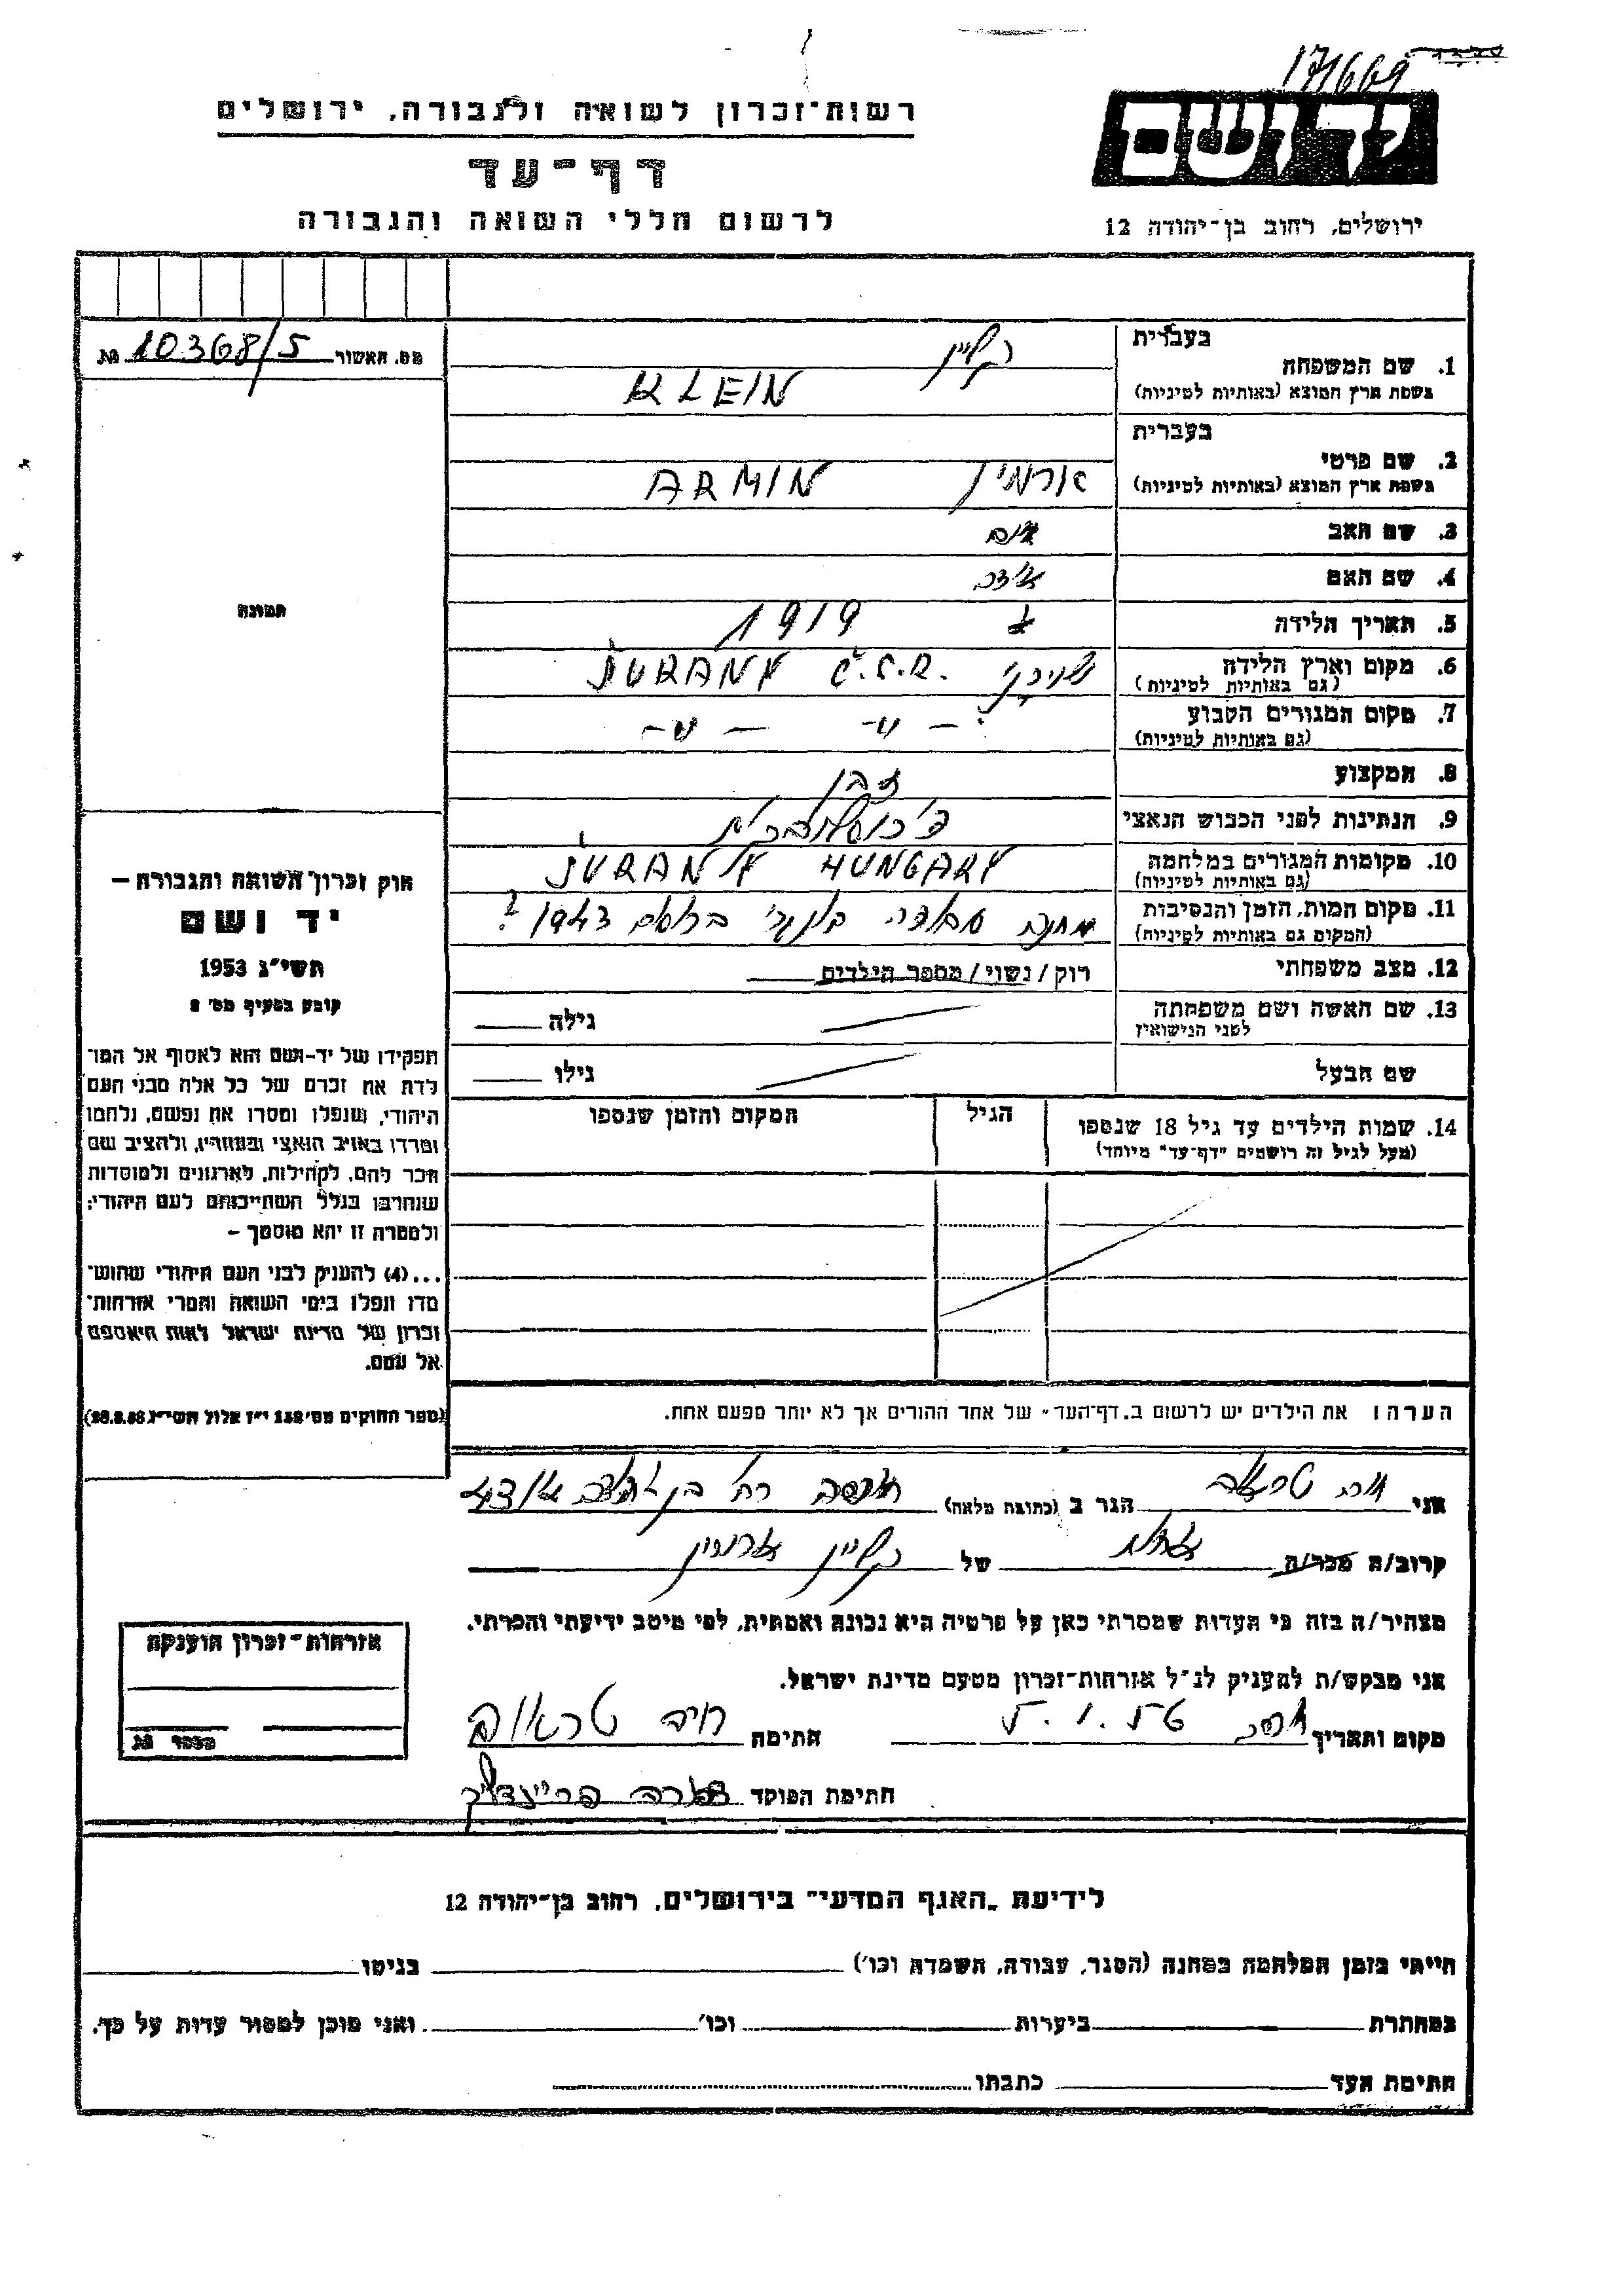 171669
רשות־זכרון לשואה ולגבורה, ירושלים
יד ושם
דף־עד
לרשום חללי השואה והגבורה
ירושלים, רחוב בן־יהודה 12
מס. האשור 10368/5 №
בעברית
קליין
1. שם המשפחה
בשפת ארץ המוצא (באותיות לטיניות)
KLEIN
בעברית
2. שם פרטי
בשפת ארץ המוצא (באותיות לטיניות)
ארמין ARMIN
3. שם האב
4. שם האם
5. תאריך הלידה 1919
6. מקום וארץ הלידה
(גם באותיות לטיניות)
שורני ŠURANY Č.S.R.
7. מקום המגורים הקבוע
(גם באותיות לטיניות)
8. המקצוע
9. הנתינות לפני הכבוש הנאצי
10. מקומות המגורים במלחמה
(גם באותיות לטיניות)
ŠURANY HUNGARY
11. מקום המות, הזמן והנסיבות
(המקום גם באותיות לטיניות)
מחנה עבודה 1943 ?
12. מצב משפחתי
רוק / נשוי / מספר הילדים
13. שם האשה ושם משפחתה
לפני הנישואין
גילה
שם הבעל
גילו
14. שמות הילדים עד גיל 18 שנספו
(מעל לגיל זה רושמים "דף־עד" מיוחד)
הגיל
המקום והזמן שנספו
הערה: את הילדים יש לרשום ב„דף־העד" של אחד ההורים אך לא יותר מפעם אחת.
תמונה
חוק זכרון השואה והגבורה —
יד ושם
תשי"ג 1953
קובע בסעיף מס' 2
תפקידו של יד-ושם הוא לאסוף אל המו־
לדת את זכרם של כל אלה מבני העם
היהודי, שנפלו ומסרו את נפשם, נלחמו
ומרדו באויב הנאצי ובעוזריו, ולהציב שם
וזכר להם, לקהילות, לארגונים ולמוסדות
שנחרבו בגלל השתייכותם לעם היהודי;
ולמטרה זו יהא מוסמך —
...(4) להעניק לבני העם היהודי שהוש־
מדו ונפלו בימי השואה והמרי אזרחות־
זכרון של מדינת ישראל לאות היאספם
אל עמם.
(ספר החוקים מס' 132 י"ז אלול תשי"ג 28.8.53)
אני חיה טראוב הגר ב (כתובת מלאה)
קרוב/ה מכר/ה של קליין ארמין
מצהיר/ה בזה כי העדות שמסרתי כאן על פרטיה היא נכונה ואמתית, לפי מיטב ידיעתי והכרתי.
אני מבקש/ת להעניק לנ"ל אזרחות־זכרון מטעם מדינת ישראל.
מקום ותאריך
חתימה חיה טראוב
חתימת הפוקד
אזרחות־זכרון הוענקה
מספר №
לידיעת „האגף המדעי" בירושלים, רחוב בן־יהודה 12
הייתי בזמן המלחמה במחנה (הסגר, עבודה, השמדה וכו')
בגיטו
במחתרת
ביערות
וכו'
ואני מוכן למסור עדות על כך.
חתימת העד
כתבתו